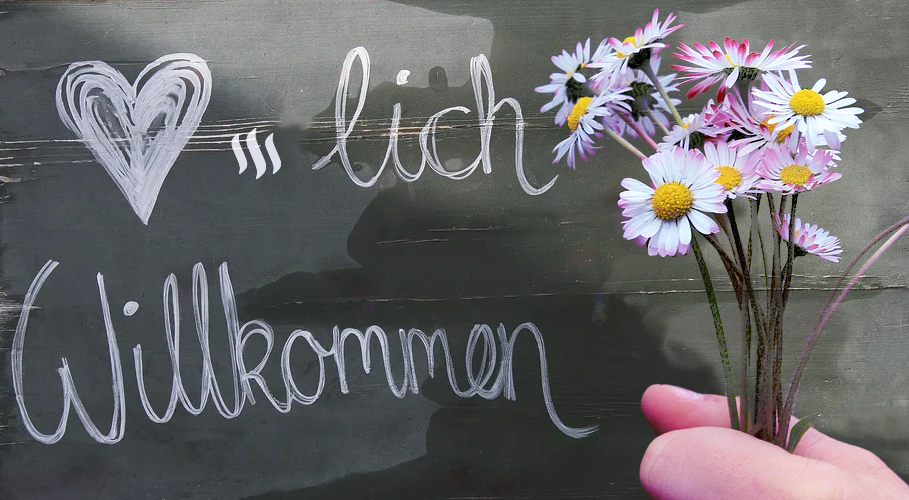 ♥ lich
Willkommen